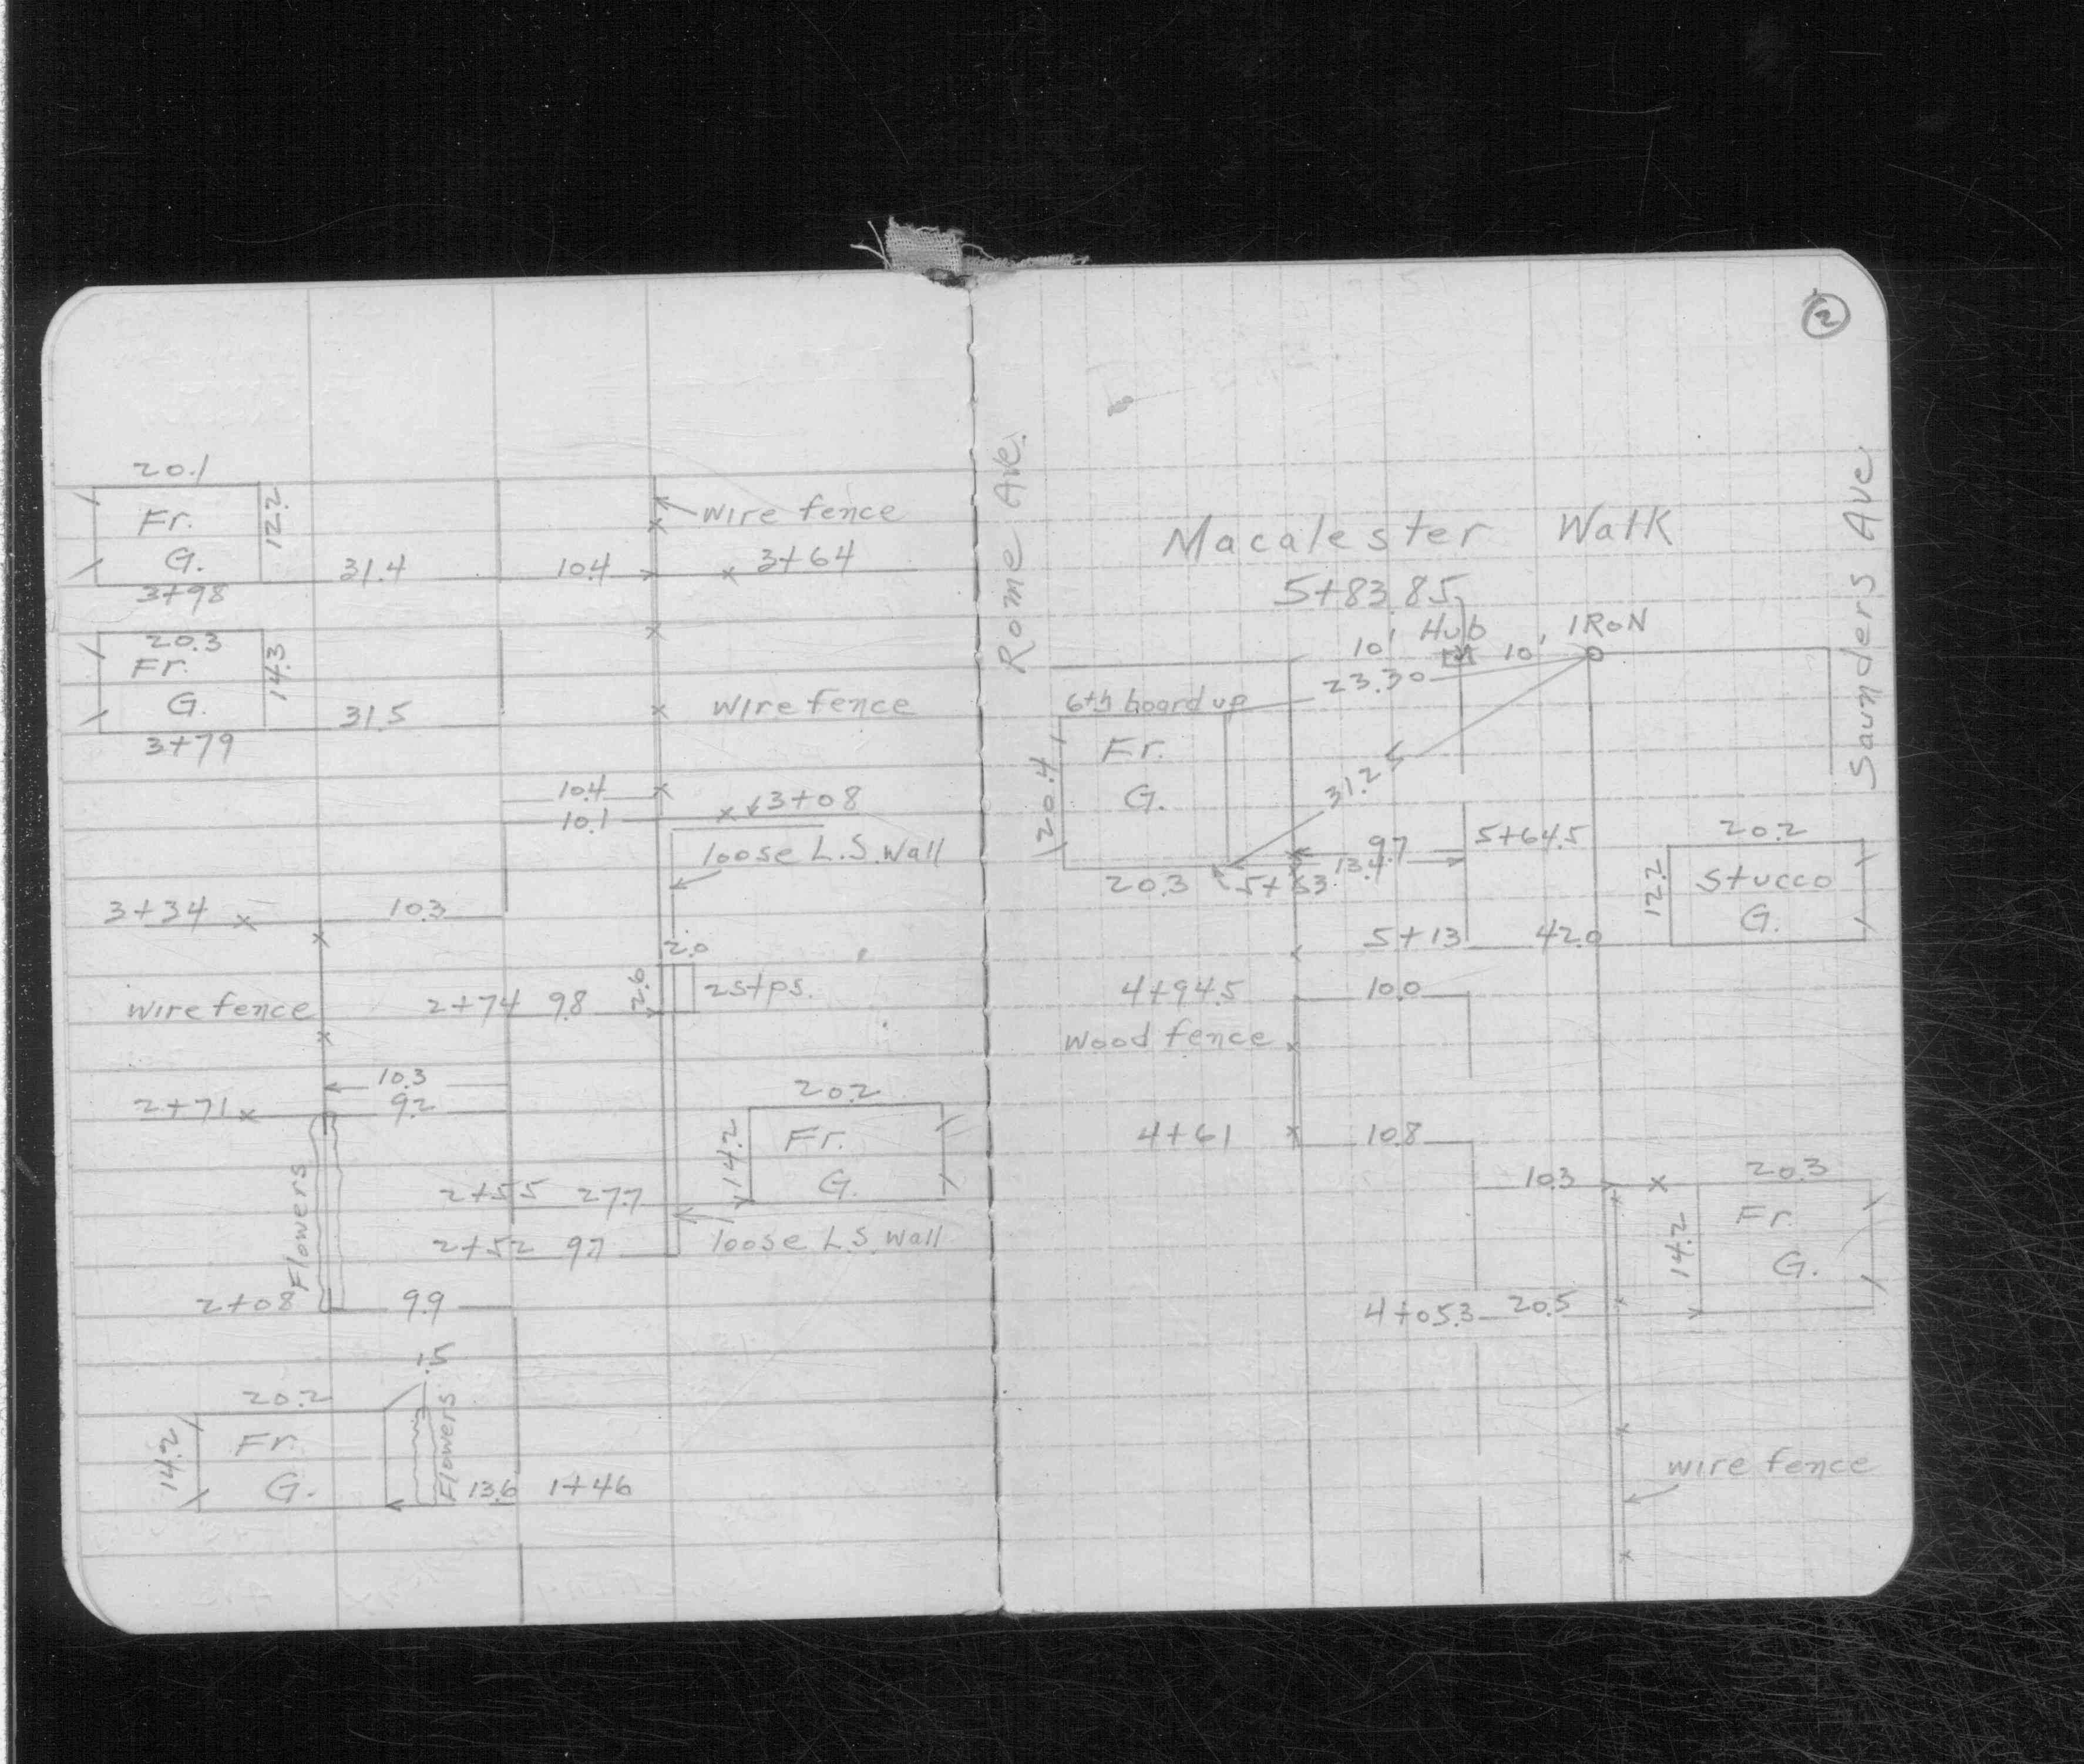 20.1
Fr.
12.2
G.
31.4
10.4
wire fence
3+64
3+98
20.3
Fr.
14.3
G.
31.5
wire fence
3+79
10.4
10.1
3+08
loose L.S. Wall
3+34
10.3
2.0
wire fence
2+74 9.8
2.6
2 stps.
10.3
2+71
9.2
20.2
Fr.
14.2
G.
Flowers
2+55 27.7
2+52 9.7
loose L.S. Wall
2+08
9.9
.5
20.2
Fr.
14.2
G.
Flowers
13.6 1+46
2
Rome Ave.
Macalester Walk
Saunders Ave.
5+83.85
10' Hub 10' IRON
23.30
6th board up
Fr.
G.
20.4
31.25
9.7
5+64.5
20.2
13.4
20.3
5+53
12.2
Stucco
G.
5+13
42.0
4+94.5
10.0
Wood fence
4+61
10.8
10.3
20.3
Fr.
14.2
G.
4+05.3
20.5
wire fence